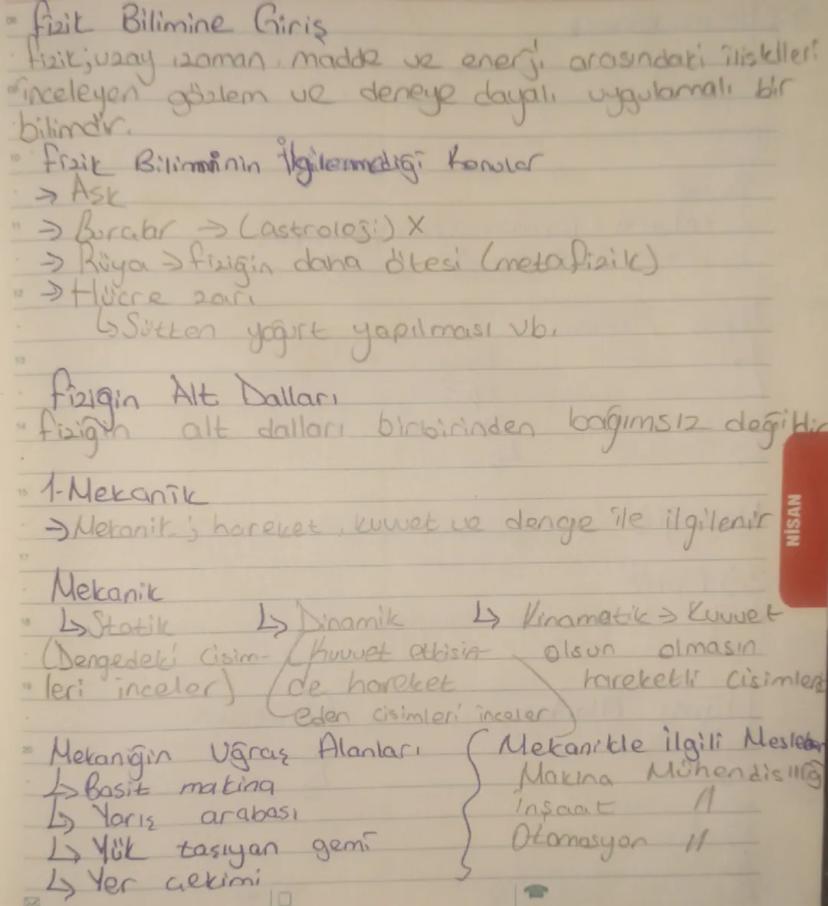 Fizik Bilimine Giriş
Fizik; uzay, zaman, madde ve enerji arasındaki ilişkileri
inceleyen gözlem ve deneye dayalı uygulamalı bir
bilimdir.
Fizik Biliminin İlgilenmediği Konular
→ Aşk
→ Burçlar → (astroloji) X
→ Rüya → fiziğin daha ötesi (metafizik)
→ Hücre zarı
↳ Sütten yoğurt yapılması vb.
Fiziğin Alt Dalları
Fiziğin alt dalları birbirinden bağımsız değildir
1-Mekanik
→ Mekanik; hareket, kuvvet ve denge ile ilgilenir
NİSAN
Mekanik
↳ Statik ↳ Dinamik ↳ Kinamatik → Kuvvet
(Dengedeki cisim- (Kuvvet etkisin- olsun olmasın
leri inceler) de hareket hareketli cisimleri
eden cisimleri inceler)
Mekaniğin Uğraş Alanları Mekanikle ilgili Meslekler
↳ Basit makina Makina Mühendisliği
↳ Yarış arabası İnşaat //
↳ Yük taşıyan gemi Otomasyon //
↳ Yer çekimi